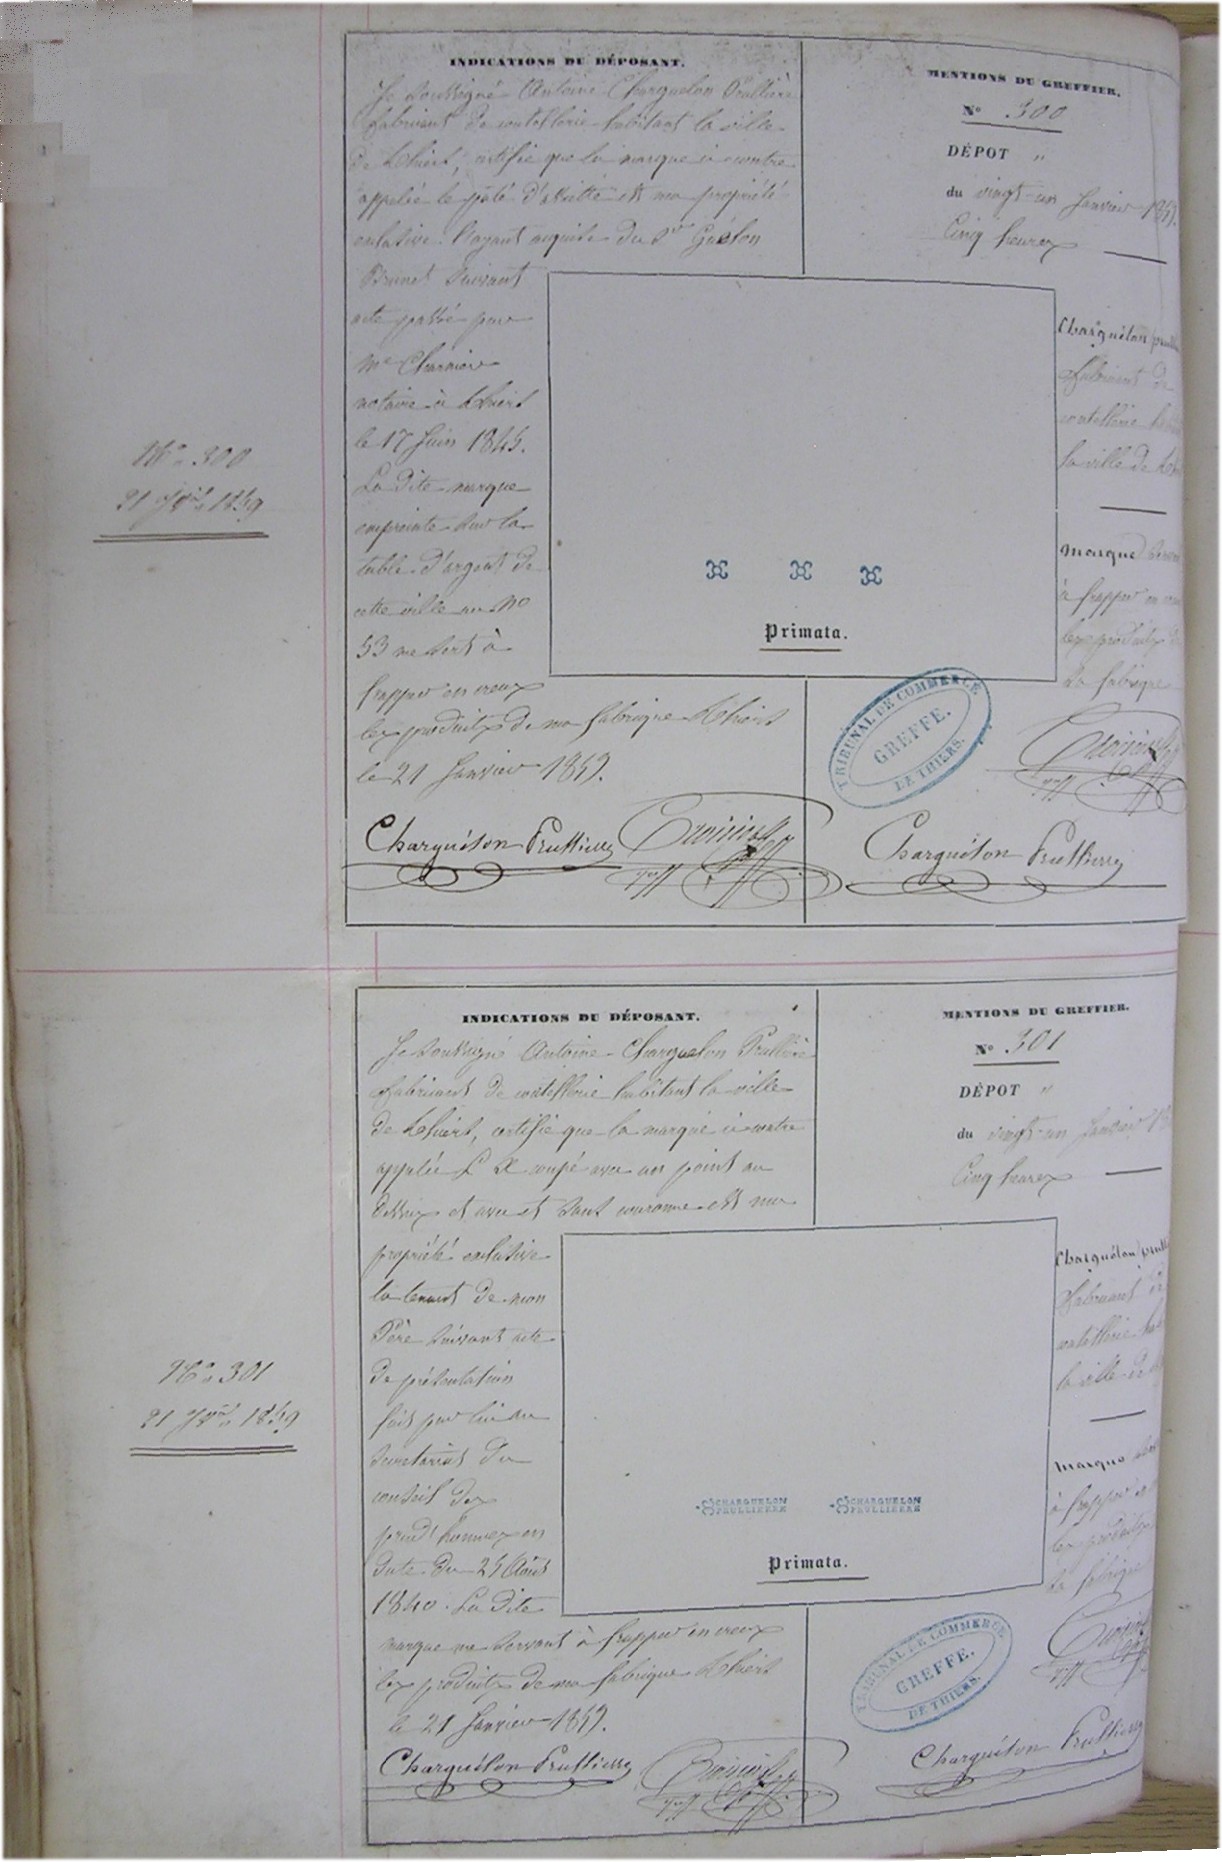 INDICATIONS DU DÉPOSANT.
Je soussigné Antoine Charguelon Prullière
fabricant de coutellerie habitant la ville
de Thiers, certifie que la marque ci contre
appelée le pâté d'assiette est ma propriété
exclusive l'ayant acquise du Sr
Brunel suivant
acte passé par
Me
notaire à Thiers
le 17 Juin 1845.
La dite marque
empreinte sur la
table d'argent de
cette ville au No
53 me sert à
frapper en creux
les produits de ma fabrique Thiers
le 21 Janvier 1859.
Charguélon Prullière
MENTIONS DU GREFFIER.
No 300
DÉPOT "
du vingt-un Janvier
Cinq heures
Charguélon
fabricant de
coutellerie
la ville de
marque
à frapper en
les produits
sa fabrique
Charguélon Prullière
Primata.
TRIBUNAL DE COMMERCE
GREFFE.
DE THIERS.
No 300
21 Jer 1859
INDICATIONS DU DÉPOSANT.
Je soussigné Antoine Charguelon Prullière
fabricant de coutellerie habitant la ville
de Thiers, certifie que la marque ci contre
appelée L' X coupé avec un point au
dessus et avec et sans couronne est ma
propriété exclusive
la tenant de mon
Père suivant acte
de présentation
fait par lui au
secretariat du
conseil des
prud'hommes en
date du 25 Août
1840. La dite
marque me servant à frapper en creux
les produits de ma fabrique Thiers
le 21 Janvier 1859.
Charguélon Prullière
MENTIONS DU GREFFIER.
No 301
DÉPOT "
du vingt-un Janvier
Cinq heures
Charguélon
fabricant de
coutellerie
la ville de
marque
à frapper
les produits
sa fabrique
Charguélon Prullière
CHARGUELON
PRULLIERE
CHARGUELON
PRULLIERE
Primata.
TRIBUNAL DE COMMERCE
GREFFE.
DE THIERS.
No 301
21 Jer 1859